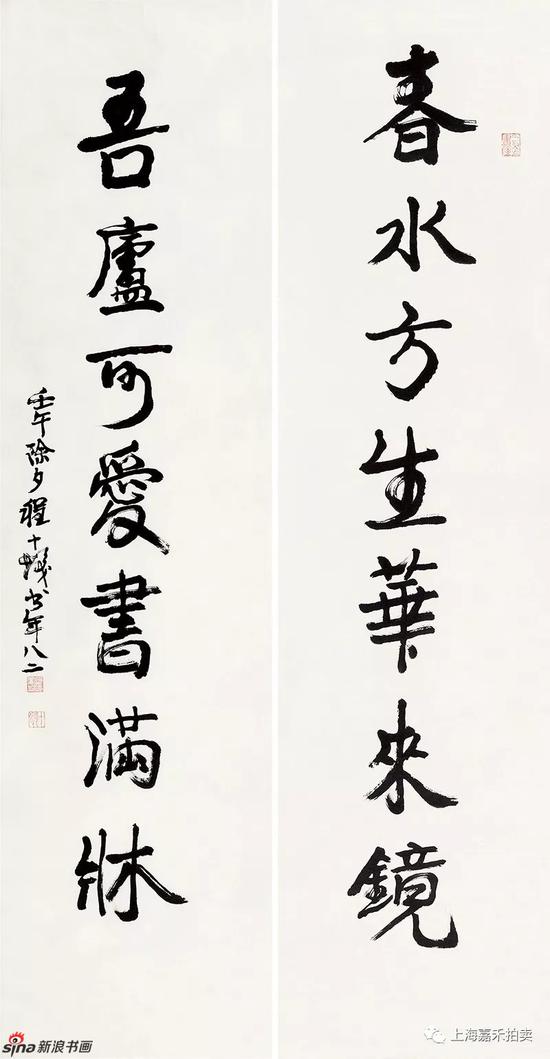 春水方生華來鏡
吾廬可愛書滿牀
壬午除夕程十髮書年八二
sina新浪书画
上海嘉禾拍卖